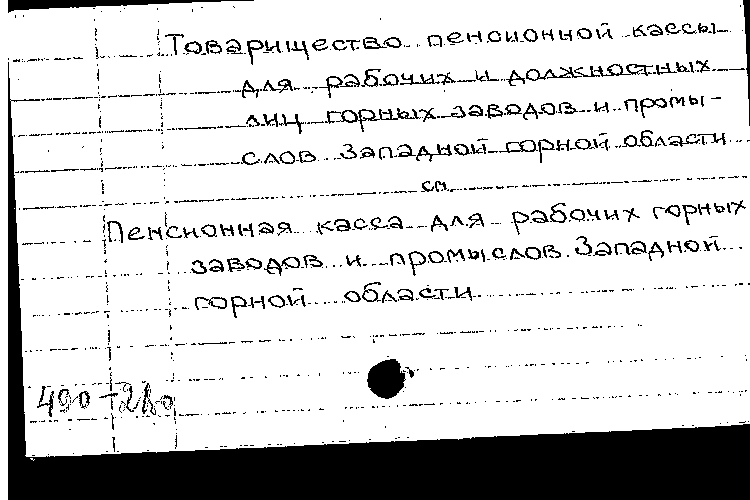 Товарищество пенсионной кассы
для рабочих и должностных
лиц горных заводов и промы-
слов Западной горной области
см.
Пенсионная касса для рабочих горных
заводов и промыслов Западной
горной области